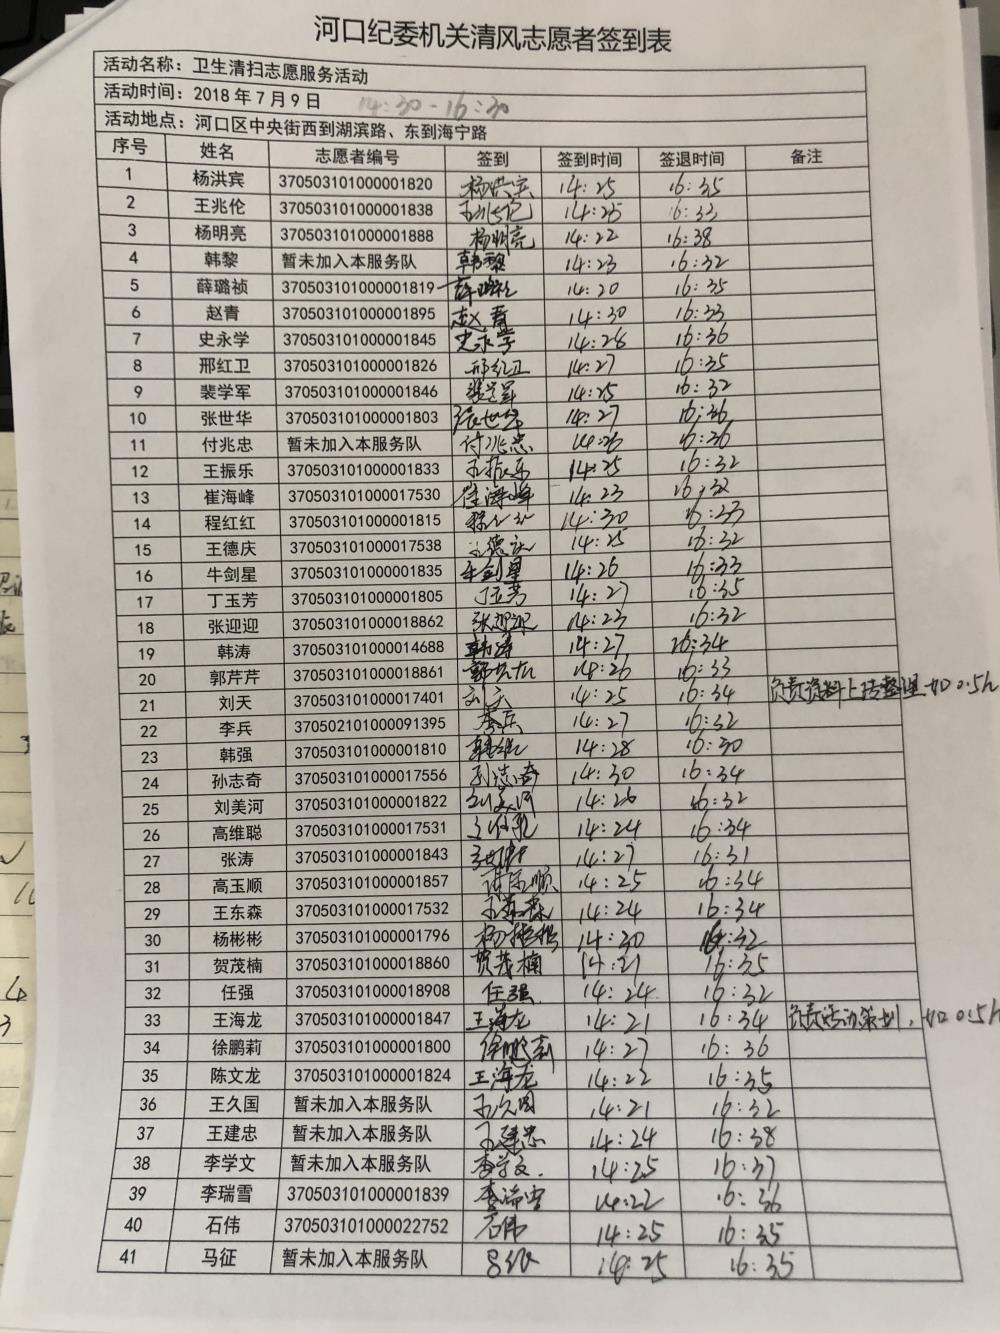 河口纪委机关清风志愿者签到表
活动名称：卫生清扫志愿服务活动
活动时间：2018年7月9日 14:30-16:30
活动地点：河口区中央街西到湖滨路、东到海宁路
序号 姓名 志愿者编号 签到 签到时间 签退时间 备注
1 杨洪宾 370503101000001820 杨洪宾 14:25 16:35
2 王兆伦 370503101000001838 王兆伦 14:25 16:33
3 杨明亮 370503101000001888 杨明亮 14:22 16:38
4 韩黎 暂未加入本服务队 韩黎 14:23 16:32
5 薛璐祯 370503101000001819 薛璐祯 14:20 16:35
6 赵青 370503101000001895 赵青 14:30 16:33
7 史永学 370503101000001845 史永学 14:28 16:36
8 邢红卫 370503101000001826 邢红卫 14:27 16:35
9 裴学军 370503101000001846 裴学军 14:25 16:32
10 张世华 370503101000001803 张世华 14:27 16:36
11 付兆忠 暂未加入本服务队 付兆忠 14:26 16:36
12 王振乐 370503101000001833 王振乐 14:25 16:32
13 崔海峰 370503101000017530 崔海峰 14:23 16:32
14 程红红 370503101000001815 程红红 14:30 16:33
15 王德庆 370503101000017538 王德庆 14:25 16:32
16 牛剑星 370503101000001835 牛剑星 14:26 16:33
17 丁玉芳 370503101000001805 丁玉芳 14:27 16:35
18 张迎迎 370503101000018862 张迎迎 14:23 16:32
19 韩涛 370503101000014688 韩涛 14:27 16:34
20 郭芹芹 370503101000018861 郭芹芹 14:26 16:33
21 刘天 370503101000017401 刘天 14:25 16:34 负责资料上传整理 加0.5h
22 李兵 370502101000091395 李兵 14:27 16:32
23 韩强 370503101000001810 韩强 14:28 16:30
24 孙志奇 370503101000017556 孙志奇 14:30 16:34
25 刘美河 370503101000001822 刘美河 14:26 16:32
26 高维聪 370503101000017531 14:24 16:34
27 张涛 370503101000001843 14:27 16:31
28 高玉顺 370503101000001857 高玉顺 14:25 16:34
29 王东森 370503101000017532 王东森 14:24 16:34
30 杨彬彬 370503101000001796 杨彬彬 14:30 16:32
31 贺茂楠 370503101000018860 贺茂楠 14:21 16:35
32 任强 370503101000018908 任强 14:24 16:32
33 王海龙 370503101000001847 王海龙 14:21 16:34 负责活动策划，加0.5h
34 徐鹏莉 370503101000001800 徐鹏莉 14:27 16:36
35 陈文龙 370503101000001824 王海龙 14:22 16:35
36 王久国 暂未加入本服务队 王久国 14:21 16:32
37 王建忠 暂未加入本服务队 王建忠 14:24 16:38
38 李学文 暂未加入本服务队 李学文 14:25 16:37
39 李瑞雪 370503101000001839 李瑞雪 14:22 16:36
40 石伟 370503101000022752 石伟 14:25 16:35
41 马征 暂未加入本服务队 14:25 16:35